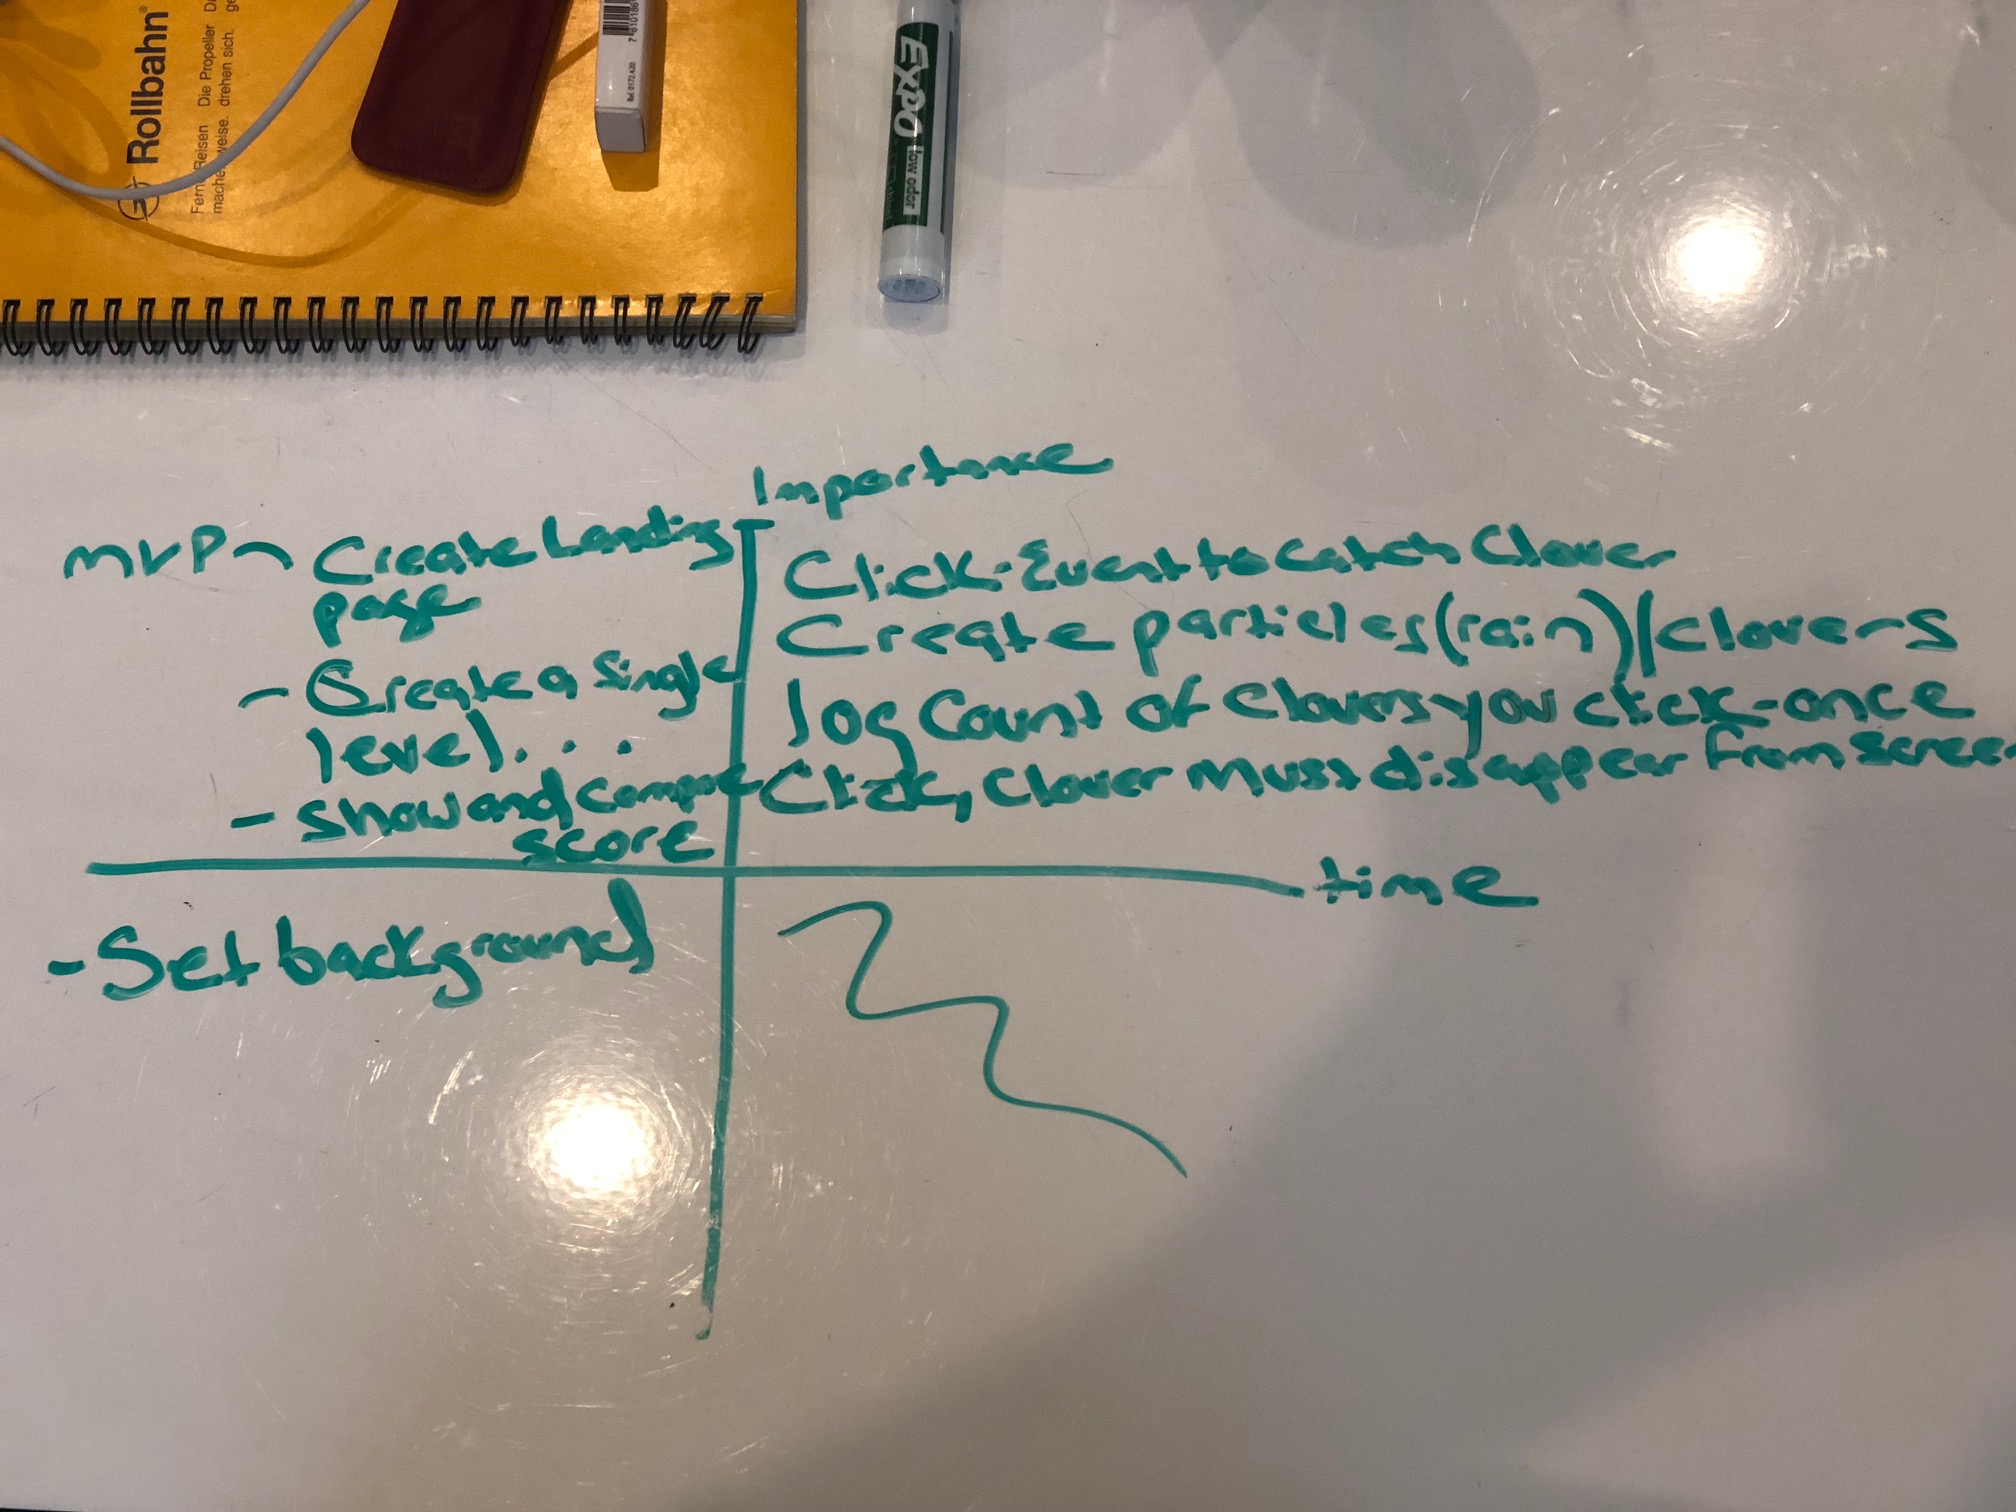 Rollbahn®
Die Propeller
drehen sich.
Ref. 0172.420
EXPO
low odor
Importance
MVP - Create Landing
page
- Create a single
level...
- Show and compare
score
Click-Event to catch Clover
Create particles(rain)/clovers
log Count of Clovers you click-once
Click, Clover Must disappear from screen
time
- Set background